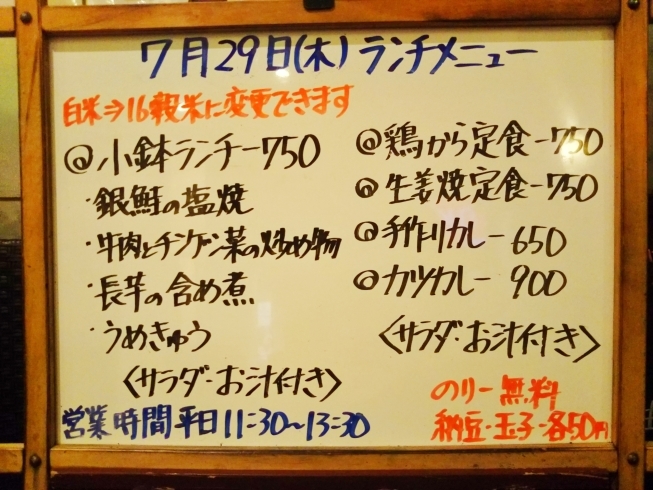 7月29日(木)ランチメニュー
白米⇒16穀米に変更できます
@小鉢ランチー750
・銀鮭の塩焼
・牛肉とチンゲン菜の炒め物
・長芋の含め煮
・うめきゅう
〈サラダ・お汁付き〉
営業時間平日11:30〜13:30
@鶏から定食-750
@生姜焼定食-750
@手作りカレー650
@カツカレー900
〈サラダ・お汁付き〉
のりー無料
納豆・玉子-各50円